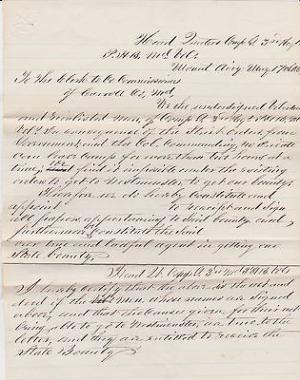 Head Quarters Comp A 3rd Regt
P.H.B. Md Vols
Mount Airy May 17th
To The Clerk to Co Commissioners
of Carroll Co, Md
We the undersigned Veteran
and Reenlisted men, of Comp A 3rd Regt P.H.B. Md
Vols in consequence of the Strict Orders from
Government, and the Col Commanding, no Private
can leave Camp for more than two hours at a
time, find it impossible under the existing
orders to get to Westminster, to get our bounty
Therefore we do hereby Constitute and
appoint To receipt and Sign
all papers appertaining to Said bounty and
furthermore Constitute the Said
our true and lawful agent in getting our
State bounty.
Head Qt. Comp A 3rd
I hereby Certify that the above is the act and
deed of the men whose names are signed
above, and that the causes given, for their not
being able to go to Westminster, are true to the
letter, and they are entitled to receive the
State Bounty